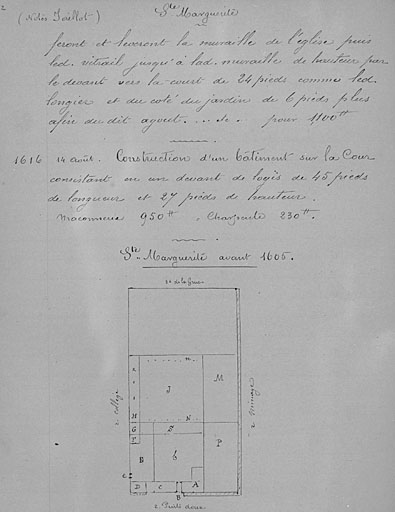 2
(Notes Jaillot)
Ste Marguerite
feront et leveront la muraille de l'église puis
led. vitrail jusqu'à lad. muraille de hauteur par
le devant vers la court de 24 pieds comme led.
longier et du coté du jardin de 6 pieds plus
afin du dit agout . . . &c. pour 1100tt
1616 14 août. Construction d'un bâtiment sur la Cour
consistant en un devant de logis de 45 pieds
de longueur et 27 pieds de hauteur.
Maçonnerie 950tt. Charpente 230tt.
Ste Marguerite avant 1605.
J
M
H
N
G
S
F
B
6
P
D
C
A
B